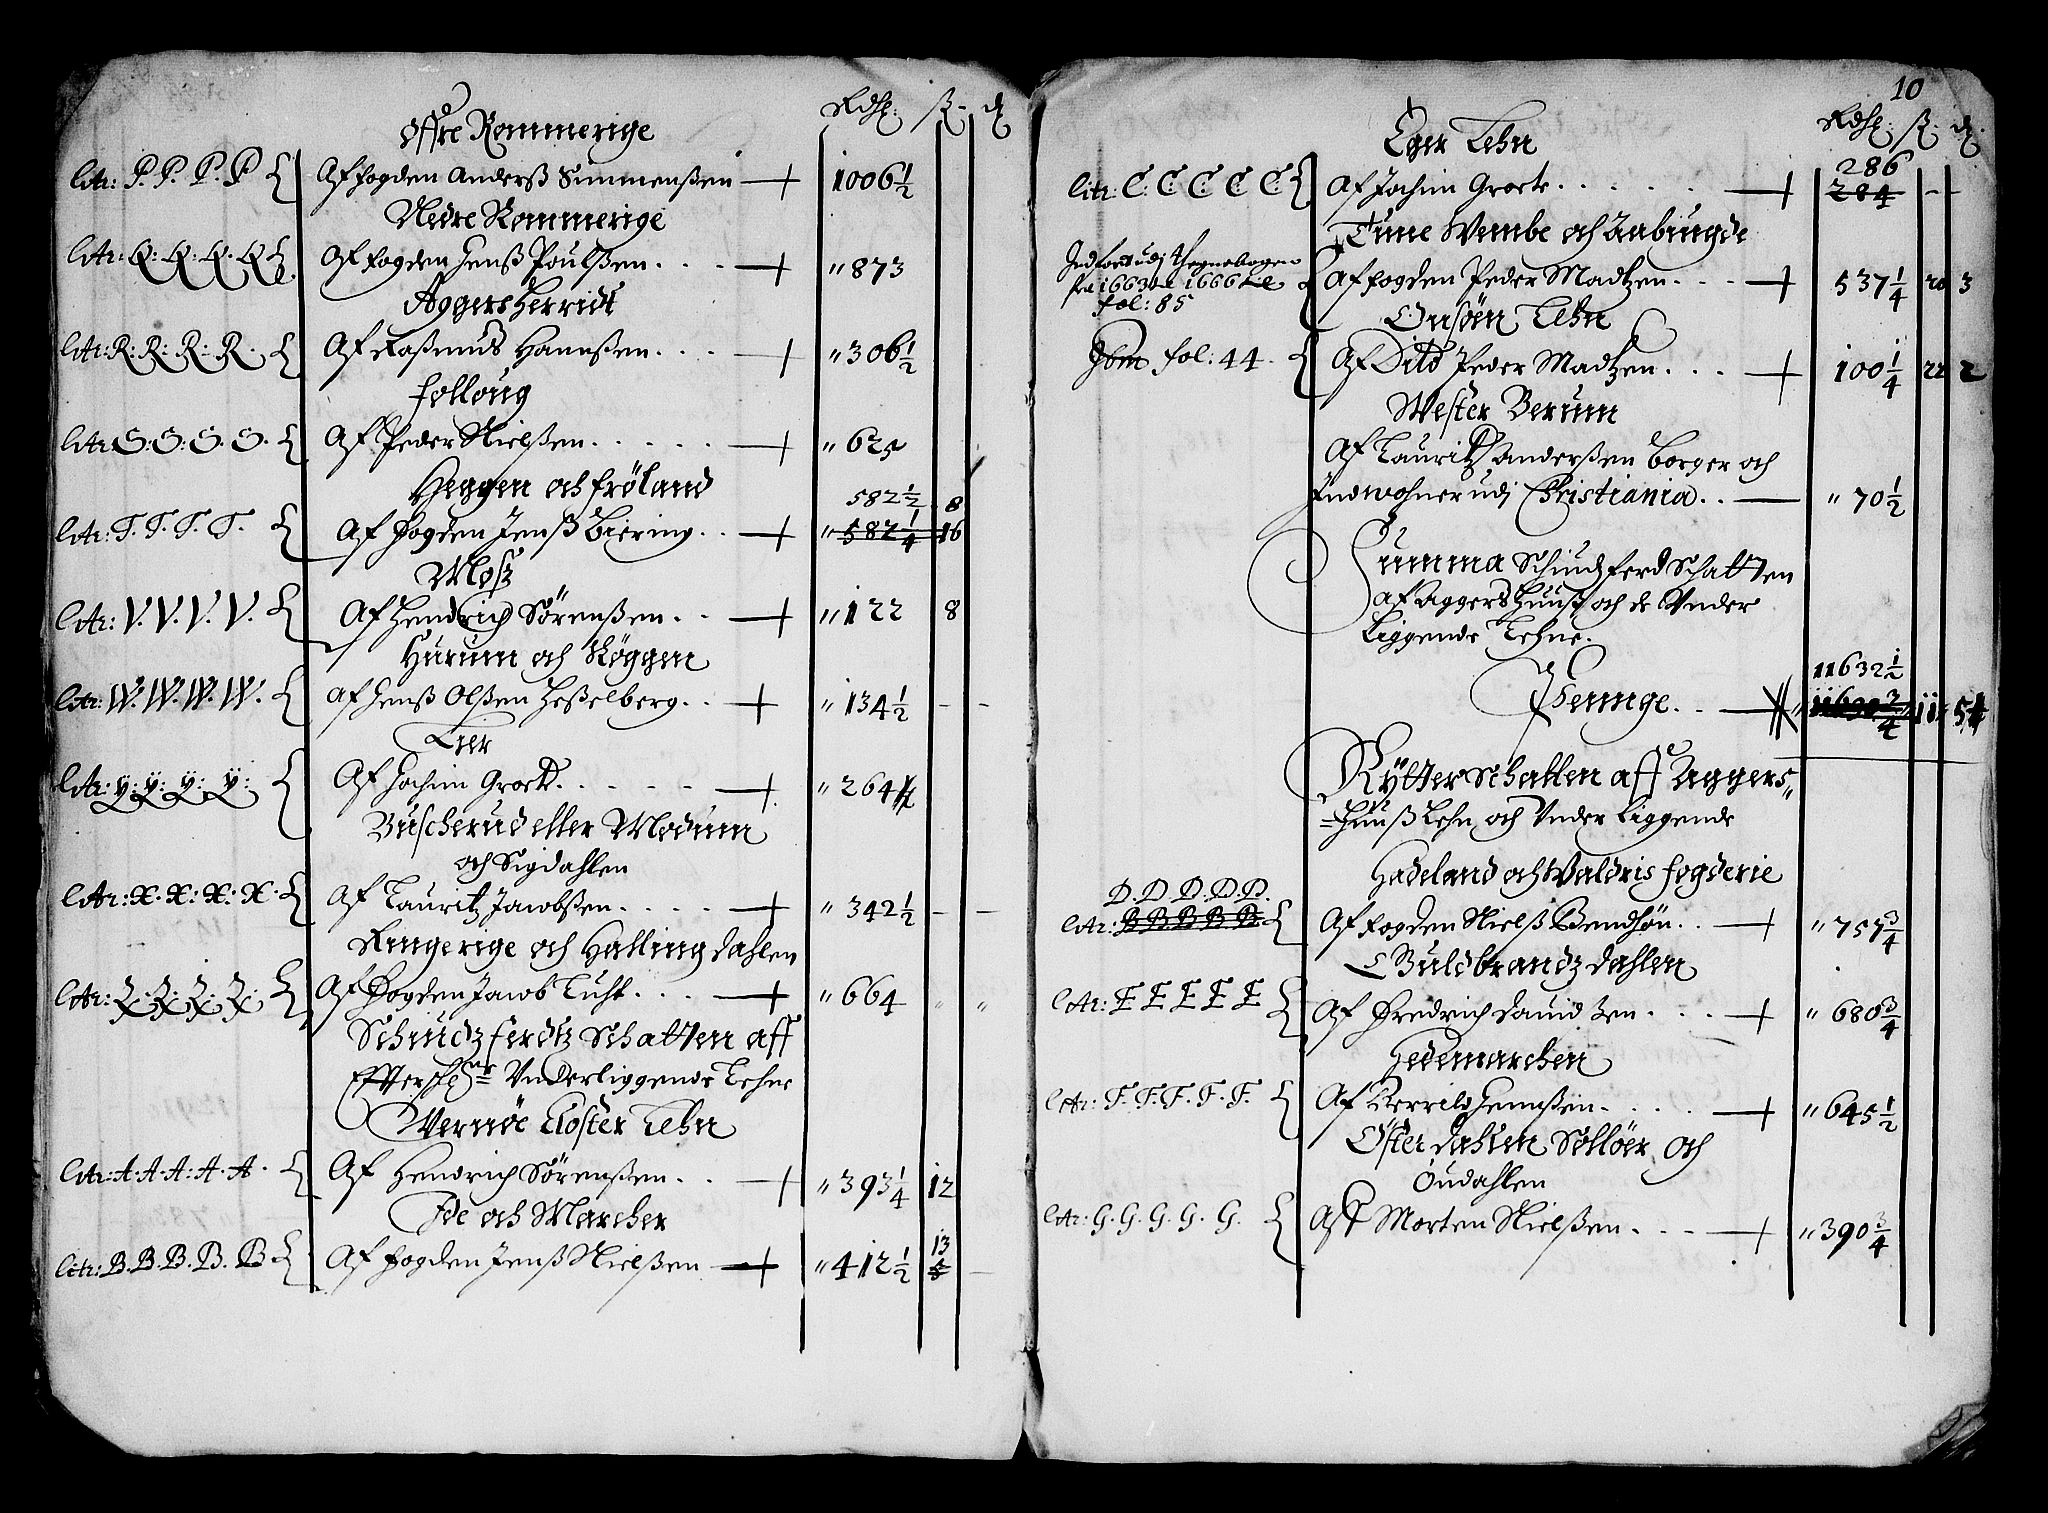 Rdlr: ß: d:
Öffre Rommerige
litr: P. P. P. P Af fogden Anderß Simmenßen 1006½
Nedre Rommerige
litr: Q: Q: Q. Q Af fogden Jenß Poulßen. . . . "873
Aggers Herridt
litr: R: R: R. R. Af Raßmus Hannßen. . . "306½
folloug
litr: S: S: S. S. Af Peder Nielßen. . . . . "625
Heggen och fröland 582½ 8
litr: T. T. T. T. Af fogden Jenß Biering. . "582¼ 16
Moß
litr: V. V. V. V. Af Hendrich Sörenßen. . . "122 8
Hurum och Röggen
litr: W. W. W. W. af Jenß Olßen Heßelberg. . "134½ - -
Lier
litr: ÿ: ÿ: ÿ: ÿ: Af Jochim Groth. . . . . "264
Buscherud eller Modum
och Sigdahlen
litr: X. X: X: X. Af Lauritz Jacobßen. . . . "342½ - -
Ringerige och Hallingdahlen
litr: Z. Z. Z. Z. Af fogden Jacob Luht. . . . "664 " "
Schiudz ferdtz Schatten aff
Effterschr: Underliggende Lehne
Wernöe Closter Lehn
litr: A. A. A: A. A. Af Hendrich Sörenßen. . . "393¼ 12
Ide och Marcher
13
litr: B. B. B. B. B Af fogden Jenß Nielßen "412½ 8 -
10
Rdlr: ß: d:
Eger Lehn
286
litr: C: C: C: C: C: Af Jochim Grote. . . . . . 284 - -
Tune Wembe och Aabÿugde
Indfört udj Regnebogen
fra 1663 til 1666 Af fogden Peder Madtzen. . . 537¼ 20 3
fol: 85
Onsöen Lehn
fol: 44. Af Dito Peder Madtzen. . . . 100¼ 22 2
Wester Berum
Af Lauritz Anderßen Borger och
Indwohner udj Christiania. . "70½
Summa Schiudzferd Schatten
af Aggershuuß och de Under
Liggende Lehne.
11632½
Pennge. . . 11630¾ 11 5
Rytter Schatten aff Aggers"
=Huuß Lehn och Under Liggende
Hadeland och Waldris fogderie
D. D. D. D. D.
litr: B. B. B. B. B. Af fogden Nielß Bendtzön. . "757¾
Guldbrandz dahlen
litr: E E E E E Af Fredrich Dauidzen. . . . "680¾
Hedemarchen
litr: F. F. F. F. F. Af Berrild Hennßen. . . . "645½
Öster dahlen Sollöer och
Öudahlen
litr: G. G. G. G. G. Aff Morten Nielßen. . . . "390¾